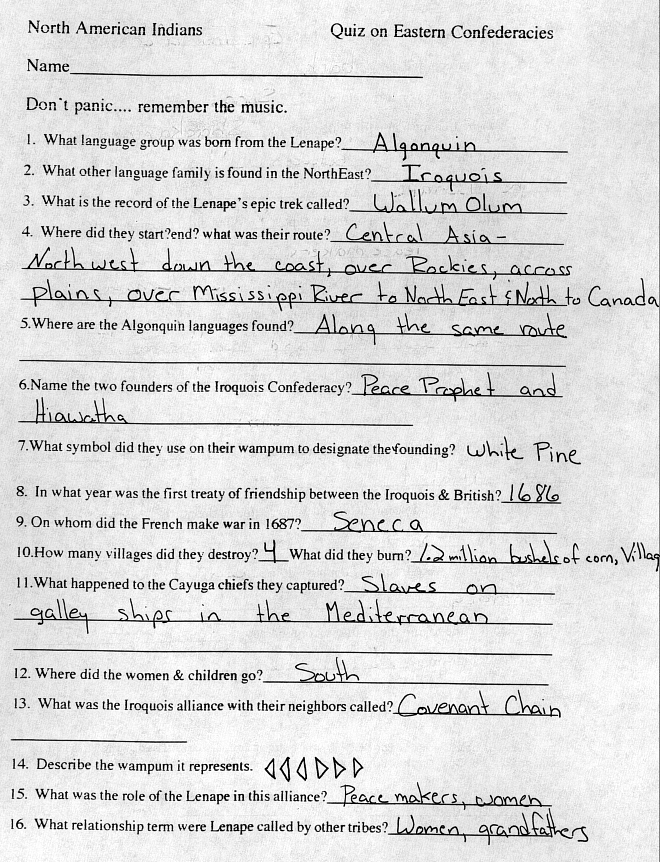 North American Indians Quiz on Eastern Confederacies
Name
Don't panic.... remember the music.
1. What language group was born from the Lenape? Algonquin
2. What other language family is found in the NorthEast? Iroquois
3. What is the record of the Lenape's epic trek called? Wallum Olum
4. Where did they start?end? what was their route? Central Asia -
Northwest down the coast, over Rockies, across
plains, over Mississippi River to North East & North to Canada
5.Where are the Algonquin languages found? Along the same route
6.Name the two founders of the Iroquois Confederacy? Peace Prophet and
Hiawatha
7.What symbol did they use on their wampum to designate the founding? White Pine
8. In what year was the first treaty of friendship between the Iroquois & British? 1686
9. On whom did the French make war in 1687? Seneca
10.How many villages did they destroy? 4 What did they burn? 1.2 million bushels of corn, Villag
11.What happened to the Cayuga chiefs they captured? Slaves on
galley ships in the Mediterranean
12. Where did the women & children go? South
13. What was the Iroquois alliance with their neighbors called? Covenant Chain
14. Describe the wampum it represents.
15. What was the role of the Lenape in this alliance? Peace makers, women
16. What relationship term were Lenape called by other tribes? Women, grandfathers